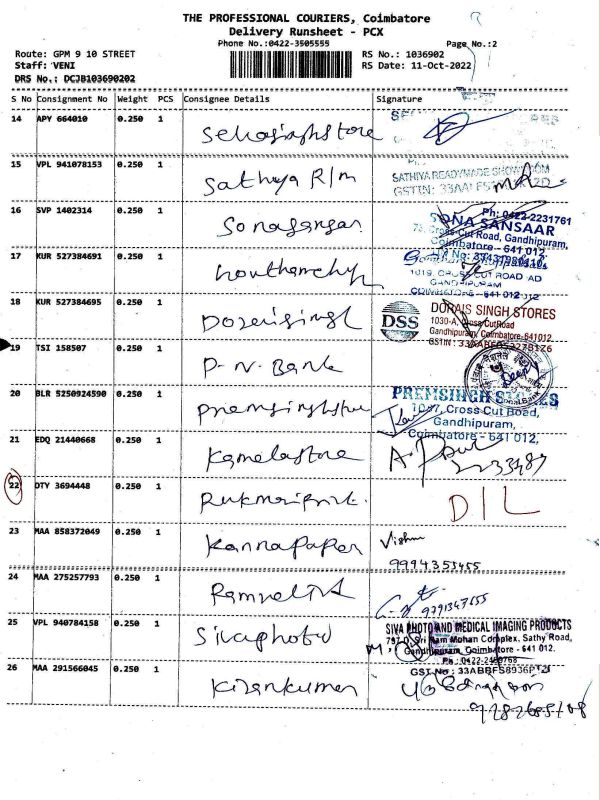 THE PROFESSIONAL COURIERS, Coimbatore
Delivery Runsheet - PCX
Phone No.:0422-3505555
Page No.:2
Route: GPM 9 10 STREET
RS No.: 1036902
Staff: VENI
RS Date: 11-Oct-2022
DRS No.: DCJB103690202
S No Consignment No Weight PCS Consignee Details Signature
14 APY 664010 0.250 1
15 VPL 941078153 0.250 1 Sathiya R/m
SATHIYA READYMADE SHOWROOM
GSTIN:
16 SVP 1402314 0.250 1 Sonasansar
Ph: 0422-2231761
SONA SANSAAR
Cross-Cut Road, Gandhipuram,
Coimbatore - 641 012.
17 KUR 527384691 0.250 1
1019, CROSS CUT ROAD
GANDHIPURAM
COIMBATORE - 641 012
18 KUR 527384695 0.250 1
DSS
DORAIS SINGH STORES
1030-A, Cross Cut Road
Gandhipuram, Coimbatore-641012
GSTIN :
19 TSI 158507 0.250 1 P. N. Bank
20 BLR 5250924590 0.250 1 premsinghstore
PREMSINGH STORES
1047, Cross Cut Road,
Gandhipuram,
Coimbatore - 641 012.
21 EDQ 21440668 0.250 1 Kamalastore
22 DTY 3694448 0.250 1
DIL
23 MAA 858372049 0.250 1 Kannapaper
Vishnu
9994353455
24 MAA 275257793 0.250 1
25 VPL 940784158 0.250 1 Sivaphoto
SIVA PHOTO AND MEDICAL IMAGING PRODUCTS
Ram Mohan Complex, Sathy Road,
Gandhipuram, Coimbatore - 641 012.
Ph : 0422-
GST No :
26 MAA 291566045 0.250 1 Kirankumar